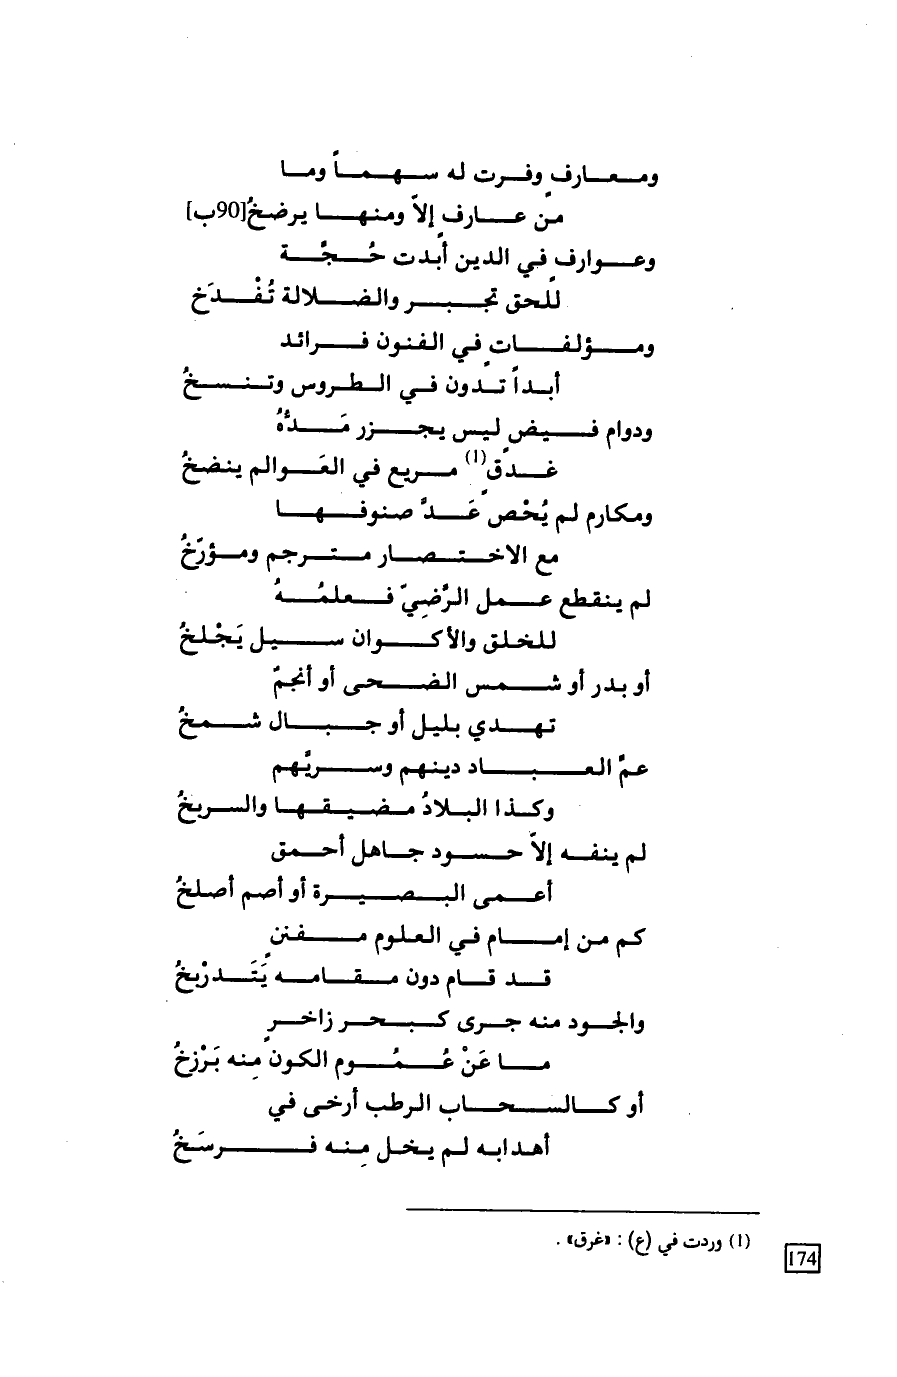 ومعارفٍ وفرت له سهماً وما
من عارفٍ إلاّ ومنها يرضخُ [90ب]
وعوارفٍ في الدين أبدت حُجَّة
للحق تجبر والضلالة تُفْدَخ
ومؤلفاتٍ في الفنون فرائد
أبداً تدون في الطروس وتنسخُ
ودوام فيضٍ ليس يجزر مَدُّهُ
غدقٍ(1) مريع في العَوالم ينضخُ
ومكارمٍ لم يُحْص عَدَّ صنوفها
مع الاختصار مترجم ومؤرّخُ
لم ينقطع عمل الرَّضِيّ فعلمُهُ
للخلق والأكوان سيل يَجْلخُ
أو بدر أو شمس الضحى أو أنجمٌ
تهدي بليل أو جبال شمخُ
عمَّ العباد دينهم وسريَّهم
وكذا البلادُ مضيقها والسربخُ
لم ينفه إلاّ حسود جاهل أحمق
أعمى البصيرة أو أصم أصلخُ
كم من إمام في العلوم مفننٍ
قد قام دون مقامه يَتَدرْبخُ
والجود منه جرى كبحر زاخرٍ
ما عَنْ عُمُوم الكون منه بَرْزخُ
أو كالسحاب الرطب أرخى في
أهدابه لم يخل مِنه فرسَخُ
(1) وردت في (ع) : «غرق» .
174